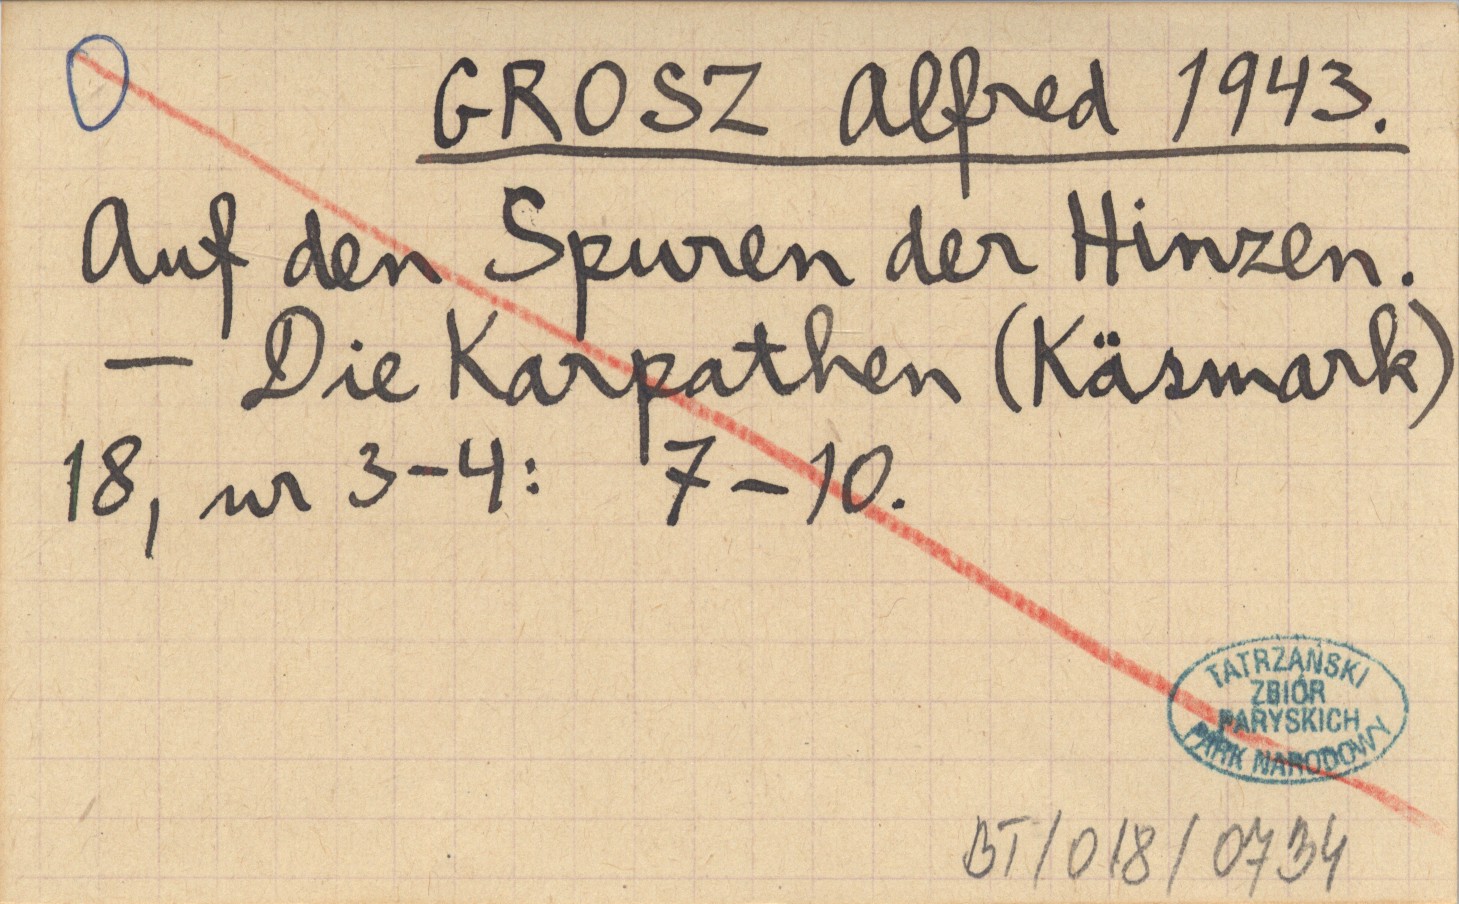 GROSZ Alfred 1943.
Auf den Spuren der Hinzen.
— Die Karpathen (Käsmark)
18, nr 3-4: 7-10.
TATRZAŃSKI
ZBIÓR
PARYSKICH
PARK NARODOWY
BT/018/0734